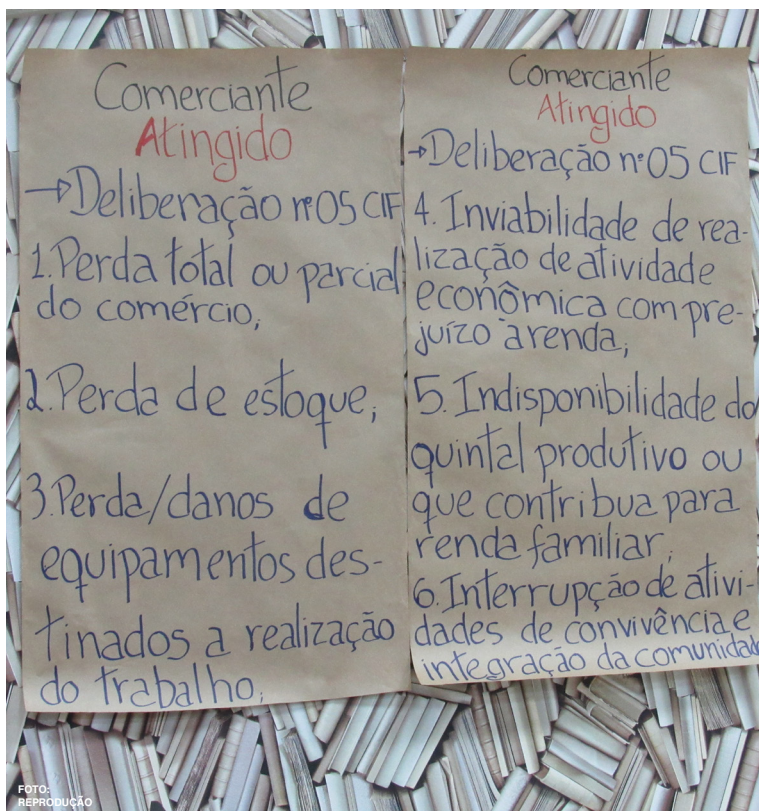 Comerciante
Atingido
→Deliberação nº 05 CIF
1. Perda total ou parcial
do comércio;
2. Perda de estoque;
3. Perda/danos de
equipamentos des-
tinados a realização
do trabalho;
Comerciante
Atingido
→Deliberação nº 05 CIF
4. Inviabilidade de rea-
lização de atividade
econômica com pre-
juízo à renda;
5. Indisponibilidade do
quintal produtivo ou
que contribua para
renda familiar;
6. Interrupção de ativi-
dades de convivência e
integração da comunidade
FOTO:
REPRODUÇÃO